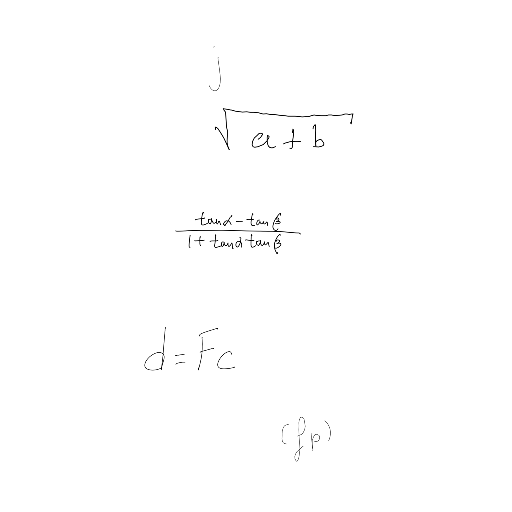 j
√(a+b)
(tanα - tanβ)/(1 + tanα tanβ)
d = Fc
(fp)